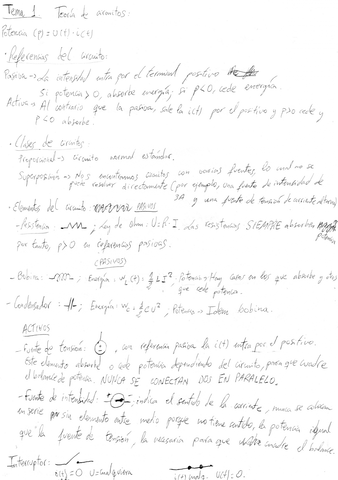 Tema 1 Teoría de circuitos:
Potencia (p) = U(t) · i(t)
· Referencias del circuito:
Pasiva → La intensidad entra por el terminal positivo
Si potencia > 0, absorbe energía; si p<0, cede energía.
Activa → Al contrario que la pasiva, sale la i(t) por el positivo y p>0 cede y
p<0 absorbe.
· Clases de circuitos:
→ circuito normal estándar.
Superposición → Nos encontramos circuitos con varias fuentes, lo cual no se
puede resolver directamente (por ejemplo, una fuente de intensidad de
3A y una fuente de tensión de corriente alterna)
· Elementos del circuito PASIVOS
- Resistencia: ; Ley de Ohm: U=R·I. Las resistencias SIEMPRE absorben potencia
por tanto, p>0 en referencias pasivas.
(PASIVOS)
- Bobina: ; Energía: w (t) = ½ L I². Potencia → Hay casos en los que absorbe y otros
que cede potencia.
- Condensador: ; Energía: w = ½ C U²; Potencia → Idem bobina.
ACTIVOS
- Fuente de tensión: , con referencia pasiva la i(t) entra por el positivo.
Este elemento absorbe o cede potencia dependiendo del circuito, para que cuadre
el balance de potencia. NUNCA SE CONECTAN DOS EN PARALELO.
- Fuente de intensidad: , indica el sentido de la corriente, nunca se colocan
en serie sin elemento entre medio porque no tiene sentido, la potencia igual
que la fuente de tensión, la necesaria para que cuadre el balance.
Interruptor:
i(t)=0 U=cualquiera i(t) U(t)=0.